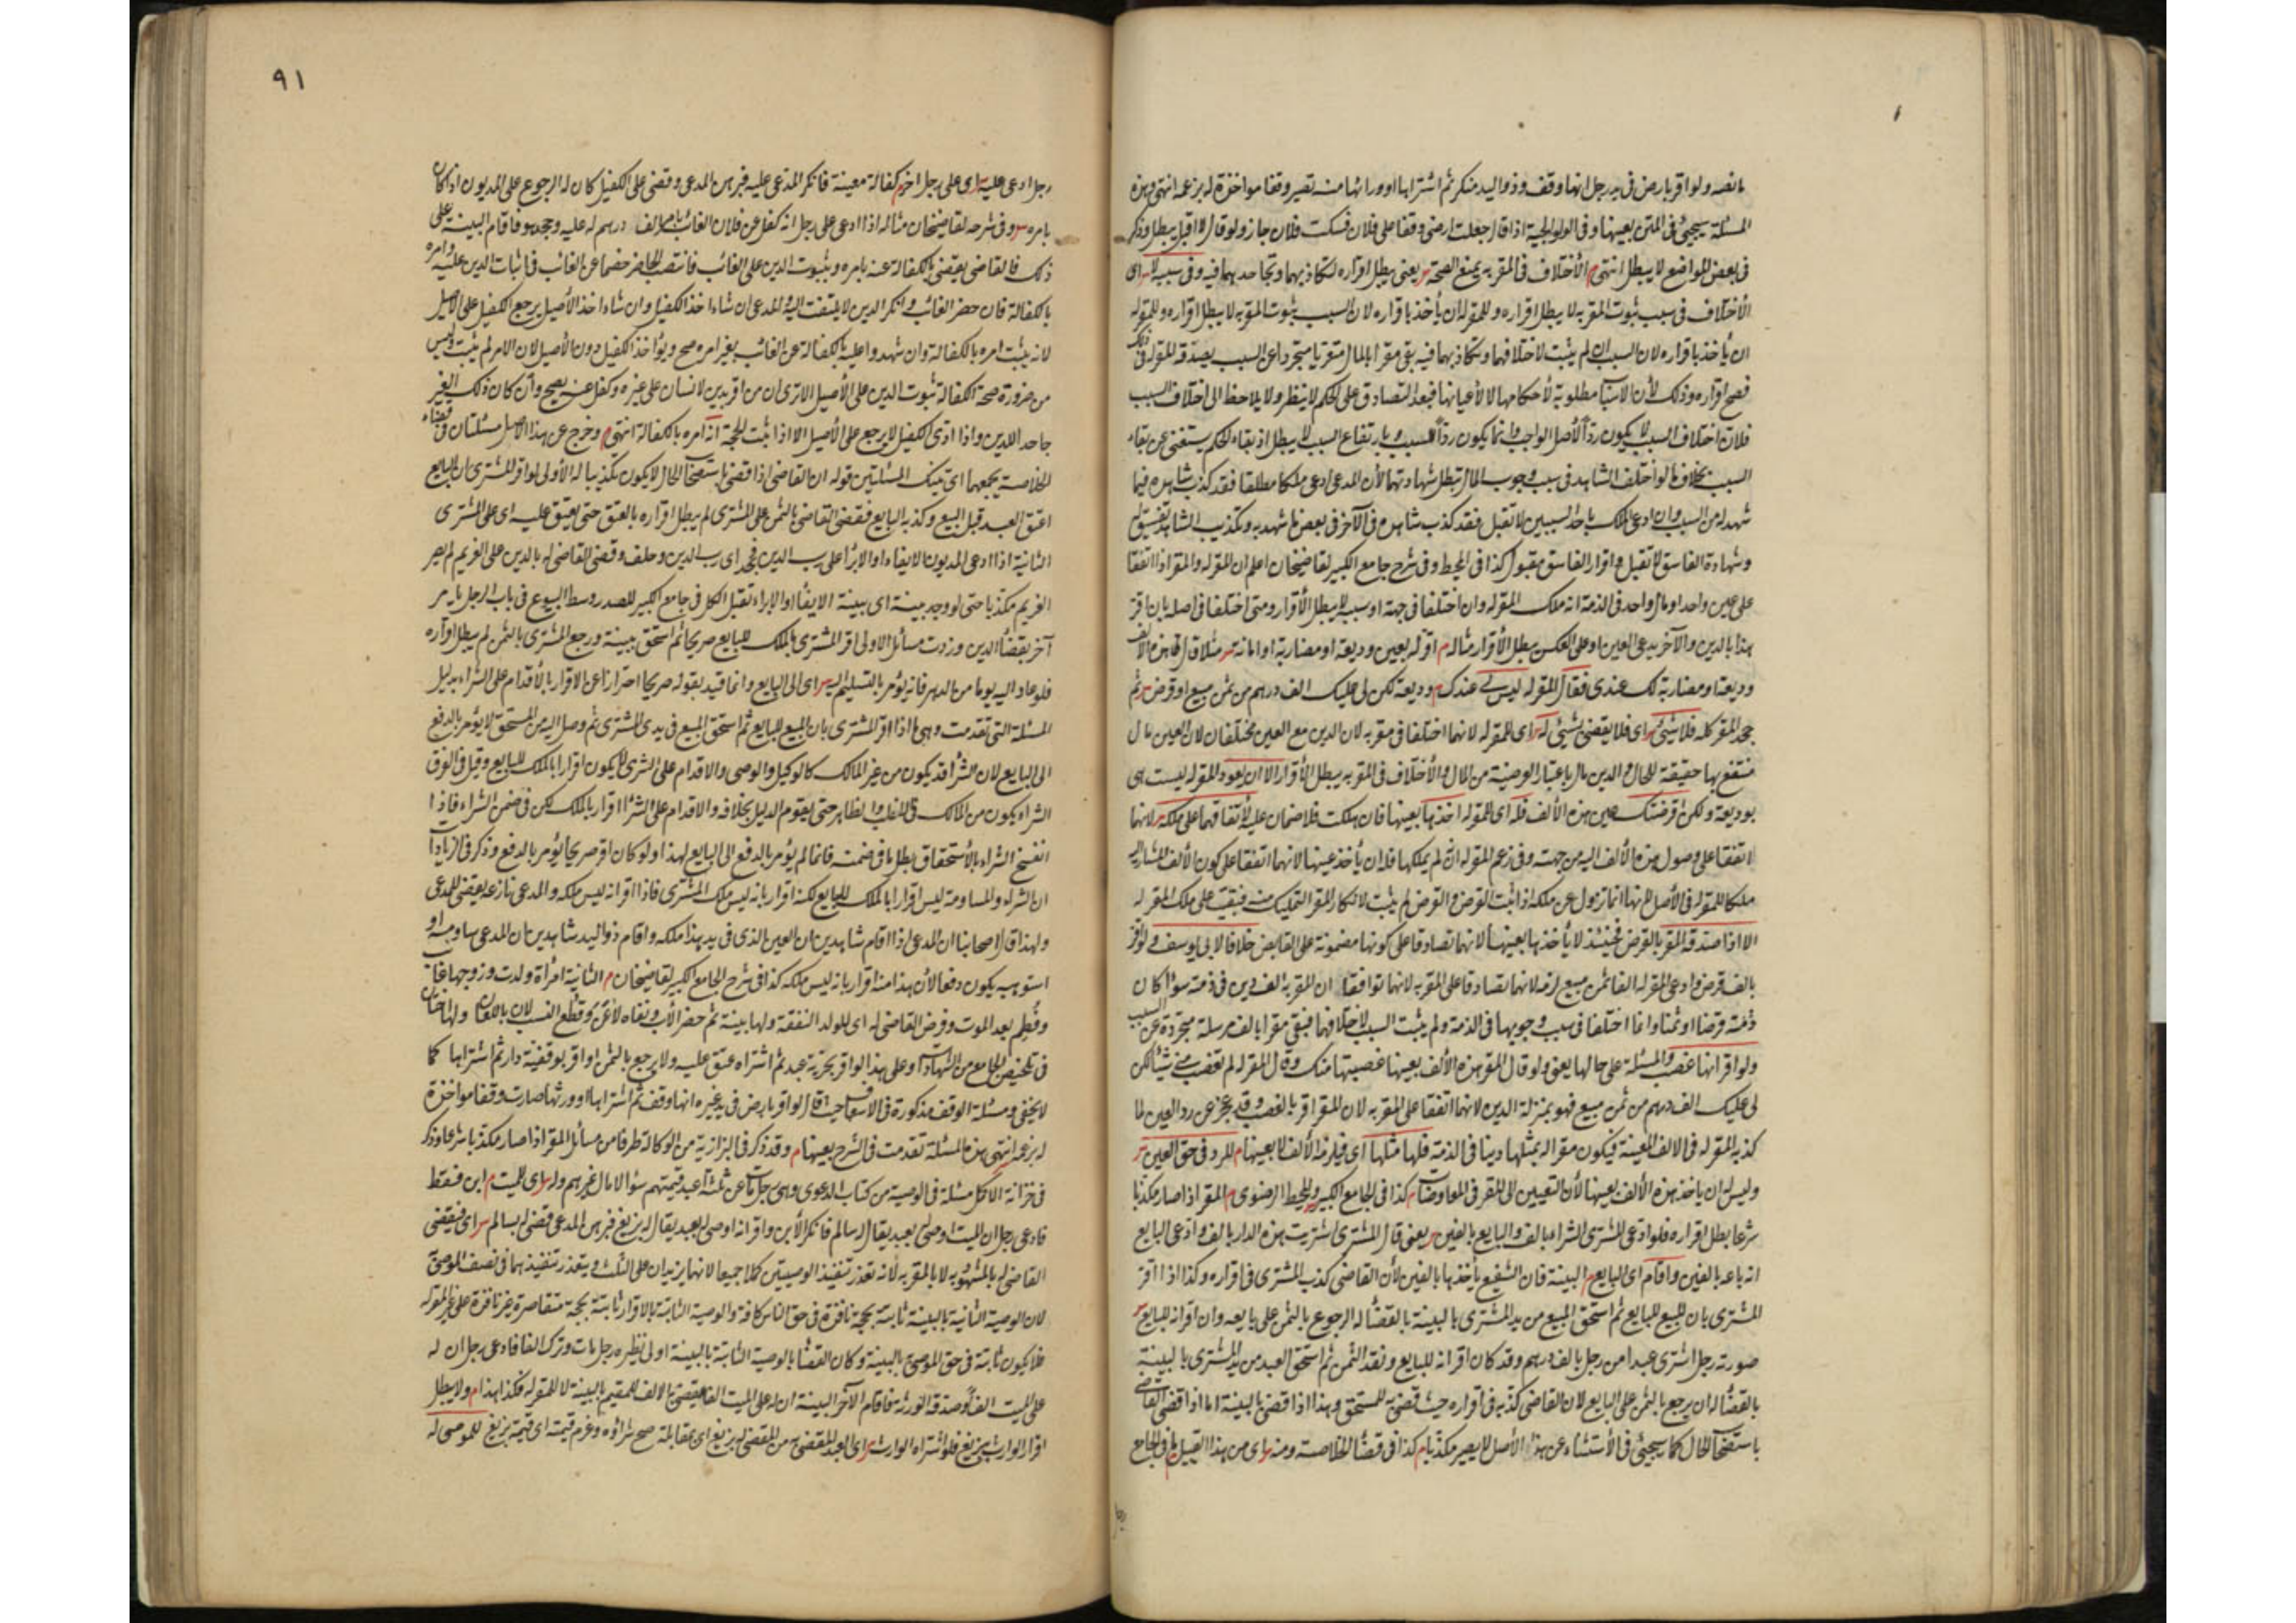 ما نصه ولو اقر بارض فى يد رجل انها وقف وذو اليد منكر ثم اشتراها او ورثها منه تصير وقفا مواخذة له بزعمه انتهى وهذه
المسئلة سيجيئ فى المتن بعينها وفى الولوالجية اذا قال جعلت ارضى وقفا على فلان فسكت فلان جاز ولو قال لا اقبل يبطل وذكر
فى بعض المواضع لا يبطل انتهى م الأختلاف فى المقر به يمنع الصحة ش يعنى يبطل اقراره لتكاذبهما وتجاحدهما فيه وفى سببه لا ش اى
الأختلاف فى سبب ثبوت المقر به لا يبطل اقراره وللمقر له ان يأخذ باقراره لان السبب ثبوت المقر به لا يبطل اقراره وللمقر له
ان يأخذ باقراره لان السبب ان لم يثبت لاختلافهما وتكاذبهما فيه بقى مقرا بالمال متعريا متجردا عن السبب يصدقه المقر له فى ذلك
فصح اقراره وذلك لأن الاسباب مطلوبة لأحكامها لا لأعيانها فبعد التصادق على الحكم لا ينظر ولا يلاحظ الى اختلاف السبب
فلان اختلاف السبب لا يكون رداً لأصل الواجب وانما يكون رداً للسبب وبارتفاع السبب لا يبطل اذ بقاء الحكم يستغنى عن بقاء
السبب بخلاف ما لو اختلف الشاهد فى سبب وجوب المال تبطل شهادتهما لأن المدعى ادعى ملكا مطلقا فقد كذب شاهده فيما
شهد له من السبب وان ادعى الملك باحد السببين لا تقبل فقد كذب شاهده فى الآخر فى بعض ما شهد به وتكذيب الشاهد تفسيق له
وشهادة الفاسق لا تقبل واقرار الفاسق مقبول كذا فى المحيط وفى شرح جامع الكبير لقاضيخان اعلم ان المقر له والمقر اذا اتفقا
على عين واحد او مال واحد فى الذمة انه ملك المقر له وان اختلفا فى جهة او سبب لا يبطل الأقرار ومتى اختلفا فى اصله بان اقر
هذا بالدين والآخر يدعى العين او على العكس يبطل الأقرار مثاله م اقر له بعين وديعة او مضاربة او امانة ش مثلا قال هذه الالف
وديعتها ومضاربة لك عندى فقال المقر له ليس لى عندك م وديعة لكن لى عليك الف درهم من ثمن مبيع او قرض ش ثم
جحد المقر كله فلا شيئ ش اى فلا يقضى بشيئ له ش اى للمقر له لانهما اختلفا فى مقر به لان الدين مع العين مختلفان لان العين مال
منتفع بها حقيقة للحال والدين مال باعتبار الوصية من المال والأختلاف فى المقر به يبطل الأقرار الا ان يعود المقر له ليست هى
بوديعة ولكن اقرضتك عين هذه الألف فله اى للمقر له اخذها بعينها فان هلكت فلا ضمان عليه لأتفاقهما على ملكه ش لانهما
اتفقا على وصول هذه الألف اليه من جهته وفى زعم المقر له انه لم يملكها فله ان يأخذ عينها لانهما اتفقا على كون الألف المشار اليه
ملكا للمقر له فى الأصل لانهما انما تزول عن ملكه اذا ثبت القرض والقرض لم يثبت لانكار المقر التمليك منه فبقيت على ملك المقر له
الا اذا صدقه المقر بالقرض فحينئذ لا يأخذها بعينها لانهما تصادقا على كونها مضمونة على القابض خلافا لابى يوسف ولو اقر
بالف قرض وادعى المقر له انها ثمن مبيع لزمه لانهما تصادقا على المقر به لانهما توافقا ان المقر به الف دين فى ذمته سواء كان
ذمته قرضا او ثمنا وانما اختلفا فى سبب وجوبها فى الذمة ولم يثبت السبب لاختلافهما فبقى مقرا بالف مرسلة مجردة عن السبب
ولو اقر انها غصب والمسئلة على حالها يعنى ولو قال المقر هذه الألف بعينها غصبتها منك وقال المقر له لم تغصب منى شيئا لكن
لى عليك الف درهم من ثمن مبيع فهو بمنزلة الدين لانهما اتفقا على المقر به لان المقر اقر بالغصب وقد عجز عن رد العين لما
كذبه المقر له فى الالف المعينة فيكون مقرا له بمثلها دينا فى الذمة فلها مثلها اى فيلزمه الألف لا بعينها م للرد فى حق العين ش
وليس له ان ياخذ هذه الألف بعينها لأن التعيين الى المقر فى المعاوضات كذا فى الجامع الكبير والمحيط الرضوى م المقر اذا صار مكذبا
شرعا بطل اقراره فلو ادعى المشترى الشراء بالف والبايع بالفين ش يعنى قال المشترى اشتريت هذه الدار بالف وادعى البايع
انه باعه بالفين واقام اى البايع م البينة فان الشفيع يأخذها بالفين لأن القاضى كذب المشترى فى اقراره وكذا اذا اقر
المشترى بان المبيع للبايع ثم استحق المبيع من يد المشترى بالبينة بالقضاء له الرجوع بالثمن على بايعه وان اقر انه للبايع ش
صورته رجل اشترى عبدا من رجل بالف درهم وقد كان اقر انه للبايع ونقد الثمن ثم استحق العبد من يد المشترى بالبينة
بالقضاء له ان يرجع بالثمن على البايع لان القاضى كذبه فى اقراره حيث قضى به للمستحق وهذا اذا قضى بالبينة اما اذا قضى القاضى
باستصحاب الحال كما سيجيئ فى الأستثناء عن هذا الأصل لا يصير مكذبا م كذا فى قضاء الخلاصة ومنه ش اى من هذا القبيل م ما فى الجامع
رجل
٩١
رجل ادعى عليه ش اى على رجل اخر م كفالة معينة فانكر المدعى عليه فبرهن المدعى وقضى على الكفيل كان له الرجوع على المديون اذا كان
بامره ش وفى شرحه لقاضيخان مثاله اذا ادعى على رجل انه كفل عن فلان الغائب بامره بالف درهم له عليه وجحد هو فاقام البينة على
ذلك فالقاضى يقضى بالكفالة عنه بامره وبثبوت الدين على الغائب فانتصب الحاضر خصما عن الغائب فى اثبات الدين عليه وامره
بالكفالة فان حضر الغائب وانكر الدين لا يلتفت اليه والمدعى ان شاء اخذ الكفيل وان شاء اخذ الأصيل يرجع الكفيل على الاصيل
لانه يثبت امره بالكفالة وان شهدوا عليه بالكفالة عن الغائب بغير امره صح ويؤاخذ الكفيل دون الأصيل لان الامر لم يثبت وليس
من ضرورة صحة الكفالة ثبوت الدين على الأصيل الا ترى ان من اقر بدين لانسان على غيره وكفل عنه يصح وان كان ذلك الغير
جاحد للدين واذا ادى الكفيل لا يرجع على الأصيل الا اذا ثبت للحجة انه امره بالكفالة انتهى م وخرج عن هذا الأصل مسئلتان فى قضاء
الخلاصة يجمعهما اى تينك المسئلتين قوله ان القاضى اذا قضى باستصحاب الحال لا يكون تكذيبا له الأولى لو اقر المشترى ان البايع
اعتق العبد قبل البيع وكذبه البايع فقضى القاضى بالثمن على المشترى لم يبطل اقراره بالعتق حتى يعتق عليه اى على المشترى
الثانية اذا ادعى المديون الايفاء او الابراء على رب الدين فجحد اى رب الدين وحلف وقضى القاضى له بالدين على الغريم لم يصر
الغريم مكذبا حتى لو وجد بينة اى بينة الايفاء او الابراء تقبل الكل فى جامع الكبير للصدر وسط البيوع فى باب الرجل يامر
آخر بقضاء الدين وزدت مسائل الاولى اقر المشترى بالملك للبايع صريحا ثم استحق ببينة ورجع المشترى بالثمن لم يبطل اقراره
فلو عاد اليه يوما من الدهر فانه يؤمر بالتسليم اليه ش اى الى البايع وانما قيد بقوله صريحا احترازا عن الاقرار بالأقدام على الشراء بدليل
المسئلة التى تقدمت وهى اذا اقر المشترى بان المبيع للبايع ثم استحق المبيع فى يدى المشترى ثم وصل اليه من المستحق لا يؤمر بالدفع
الى البايع لان الشراء قد يكون من غير المالك كالوكيل والوصى والاقدام على الشرى لا يكون اقرارا بالملك للبايع وقيل فى الفرق
الشراء يكون من المالك فى الغالب والظاهر حتى يقوم الدليل بخلافه والاقدام على الشراء اقرار بالملك لكن فى ضمن الشراء فاذا
انفسخ الشراء بالأستحقاق بطل ما فى ضمنه فانما لم يؤمر بالدفع الى البايع لهذا ولو كان اقر صريحا يؤمر بالدفع وذكر فى الزيادات
ان الشراء والمساومة ليس اقرارا بالملك للبايع لكنه اقرار بانه ليس ملك المشترى فاذا اقر انه ليس ملكه والمدعى نازعه يقضى للمدعى
ولهذا قال اصحابنا ان المدعى اذا اقام شاهدين ان العين الذى فى يد هذا ملكه واقام ذو اليد شاهدين ان المدعى ساومه او
استوهبه يكون دفعا لأن هذا منه اقرار بانه ليس ملكه كذا فى شرح الجامع الكبير لقاضيخان م الثانية امرأة ولدت وزوجها غائب
وفطم بعد الموت وفرض القاضى له اى للولد النفقة ولها بينة ثم حضر الأب ونفاه لاعن وقطع النسب لان باللعان ولها اختان
فى تلخيص الجامع من الشهادات وعلى هذا لو اقر بحرية عبد ثم اشتراه عتق عليه ولا يرجع بالثمن او اقر بوقفية دار ثم اشتراها كما
لا يخفى ومسئلة الوقف مذكورة فى الاسعاف حيث قال لو اقر بارض فى يد غيره انها وقف ثم اشتراها او ورثها صارت وقفا مواخذة
له بزعمه انتهى هذه المسئلة تقدمت فى الشرح بعينها م وقد ذكر فى البزازية من الوكالة طرفا من مسائل المقر اذا صار مكذبا شرعا وذكر
فى خزانة الأكمل مسئلة فى الوصية من كتاب الدعوى وهى رجل مات عن ثلثة اعبد قيمتهم سواء لا مال غيرهم وله ش اى للميت م ابن فقط
فادعى رجل ان الميت اوصى له بعبد يقال له سالم فانكر الأبن واقر انه اوصى له بعبد يقال له بزيغ فبرهن المدعى قضى له بسالم ش اى فيقضى
القاضى له بالمشهود به لا بالمقر به لانه تعذر تنفيذ الوصيتين كملا جميعا لانهما يزيدان على الثلث ويتعذر تنفيذهما فى نصف الموصى
لان الوصية الثانية بالبينة ثابتة بحجة نافذة فى حق الناس كافة والوصية الثابتة بالاقرار ثابتة بحجة متقاصرة غير نافذة على غير المقر له
فلا يكون ثابتة فى حق الموصى بالبينة وكان القضاء بالوصية الثابتة بالبينة اولى نظيره رجل مات وترك الفا فادعى رجل ان له
على الميت الفا وصدقه الورثة فاقام الآخر البينة ان له على الميت الفا يقضى بالالف للمقيم بالبينة لا للمقر له فكذا هذا م ولا يبطل
اقرار الوارث ببزيغ فلو اشتراه الوارث ش اى العبد المقضى به من المقضى له ببزيغ اى بمقابلته صح شراؤه وغرم قيمته اى قيمة بزيغ للموصى له